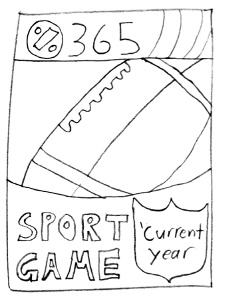 % 365
SPORT
GAME
'Current
year